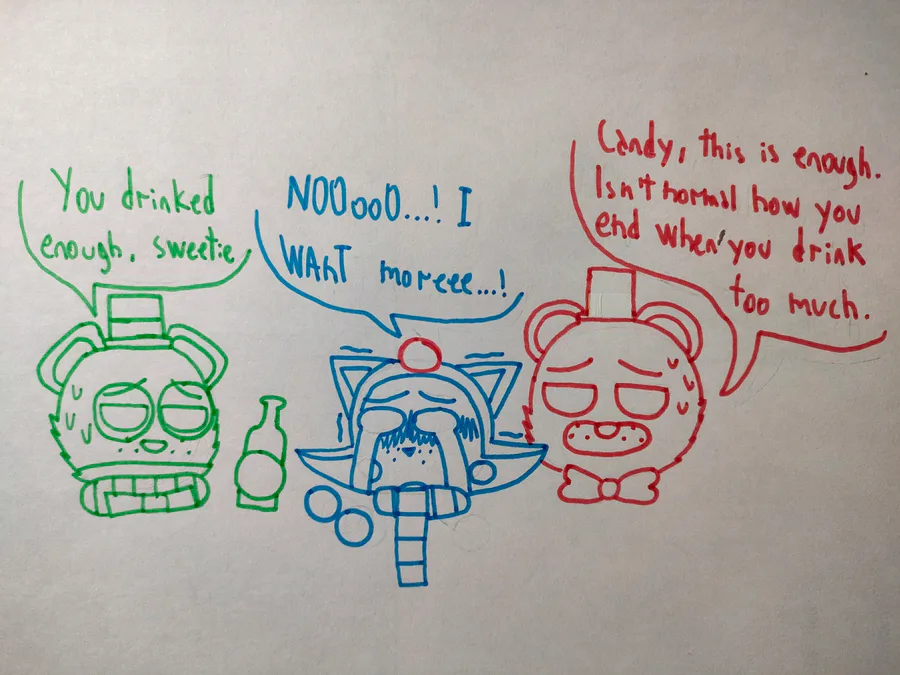 You drinked
enough, sweetie
NOOooO...! I
WAnT moreee...!
Candy, this is enough.
Isn't normal how you
end when you drink
too much.